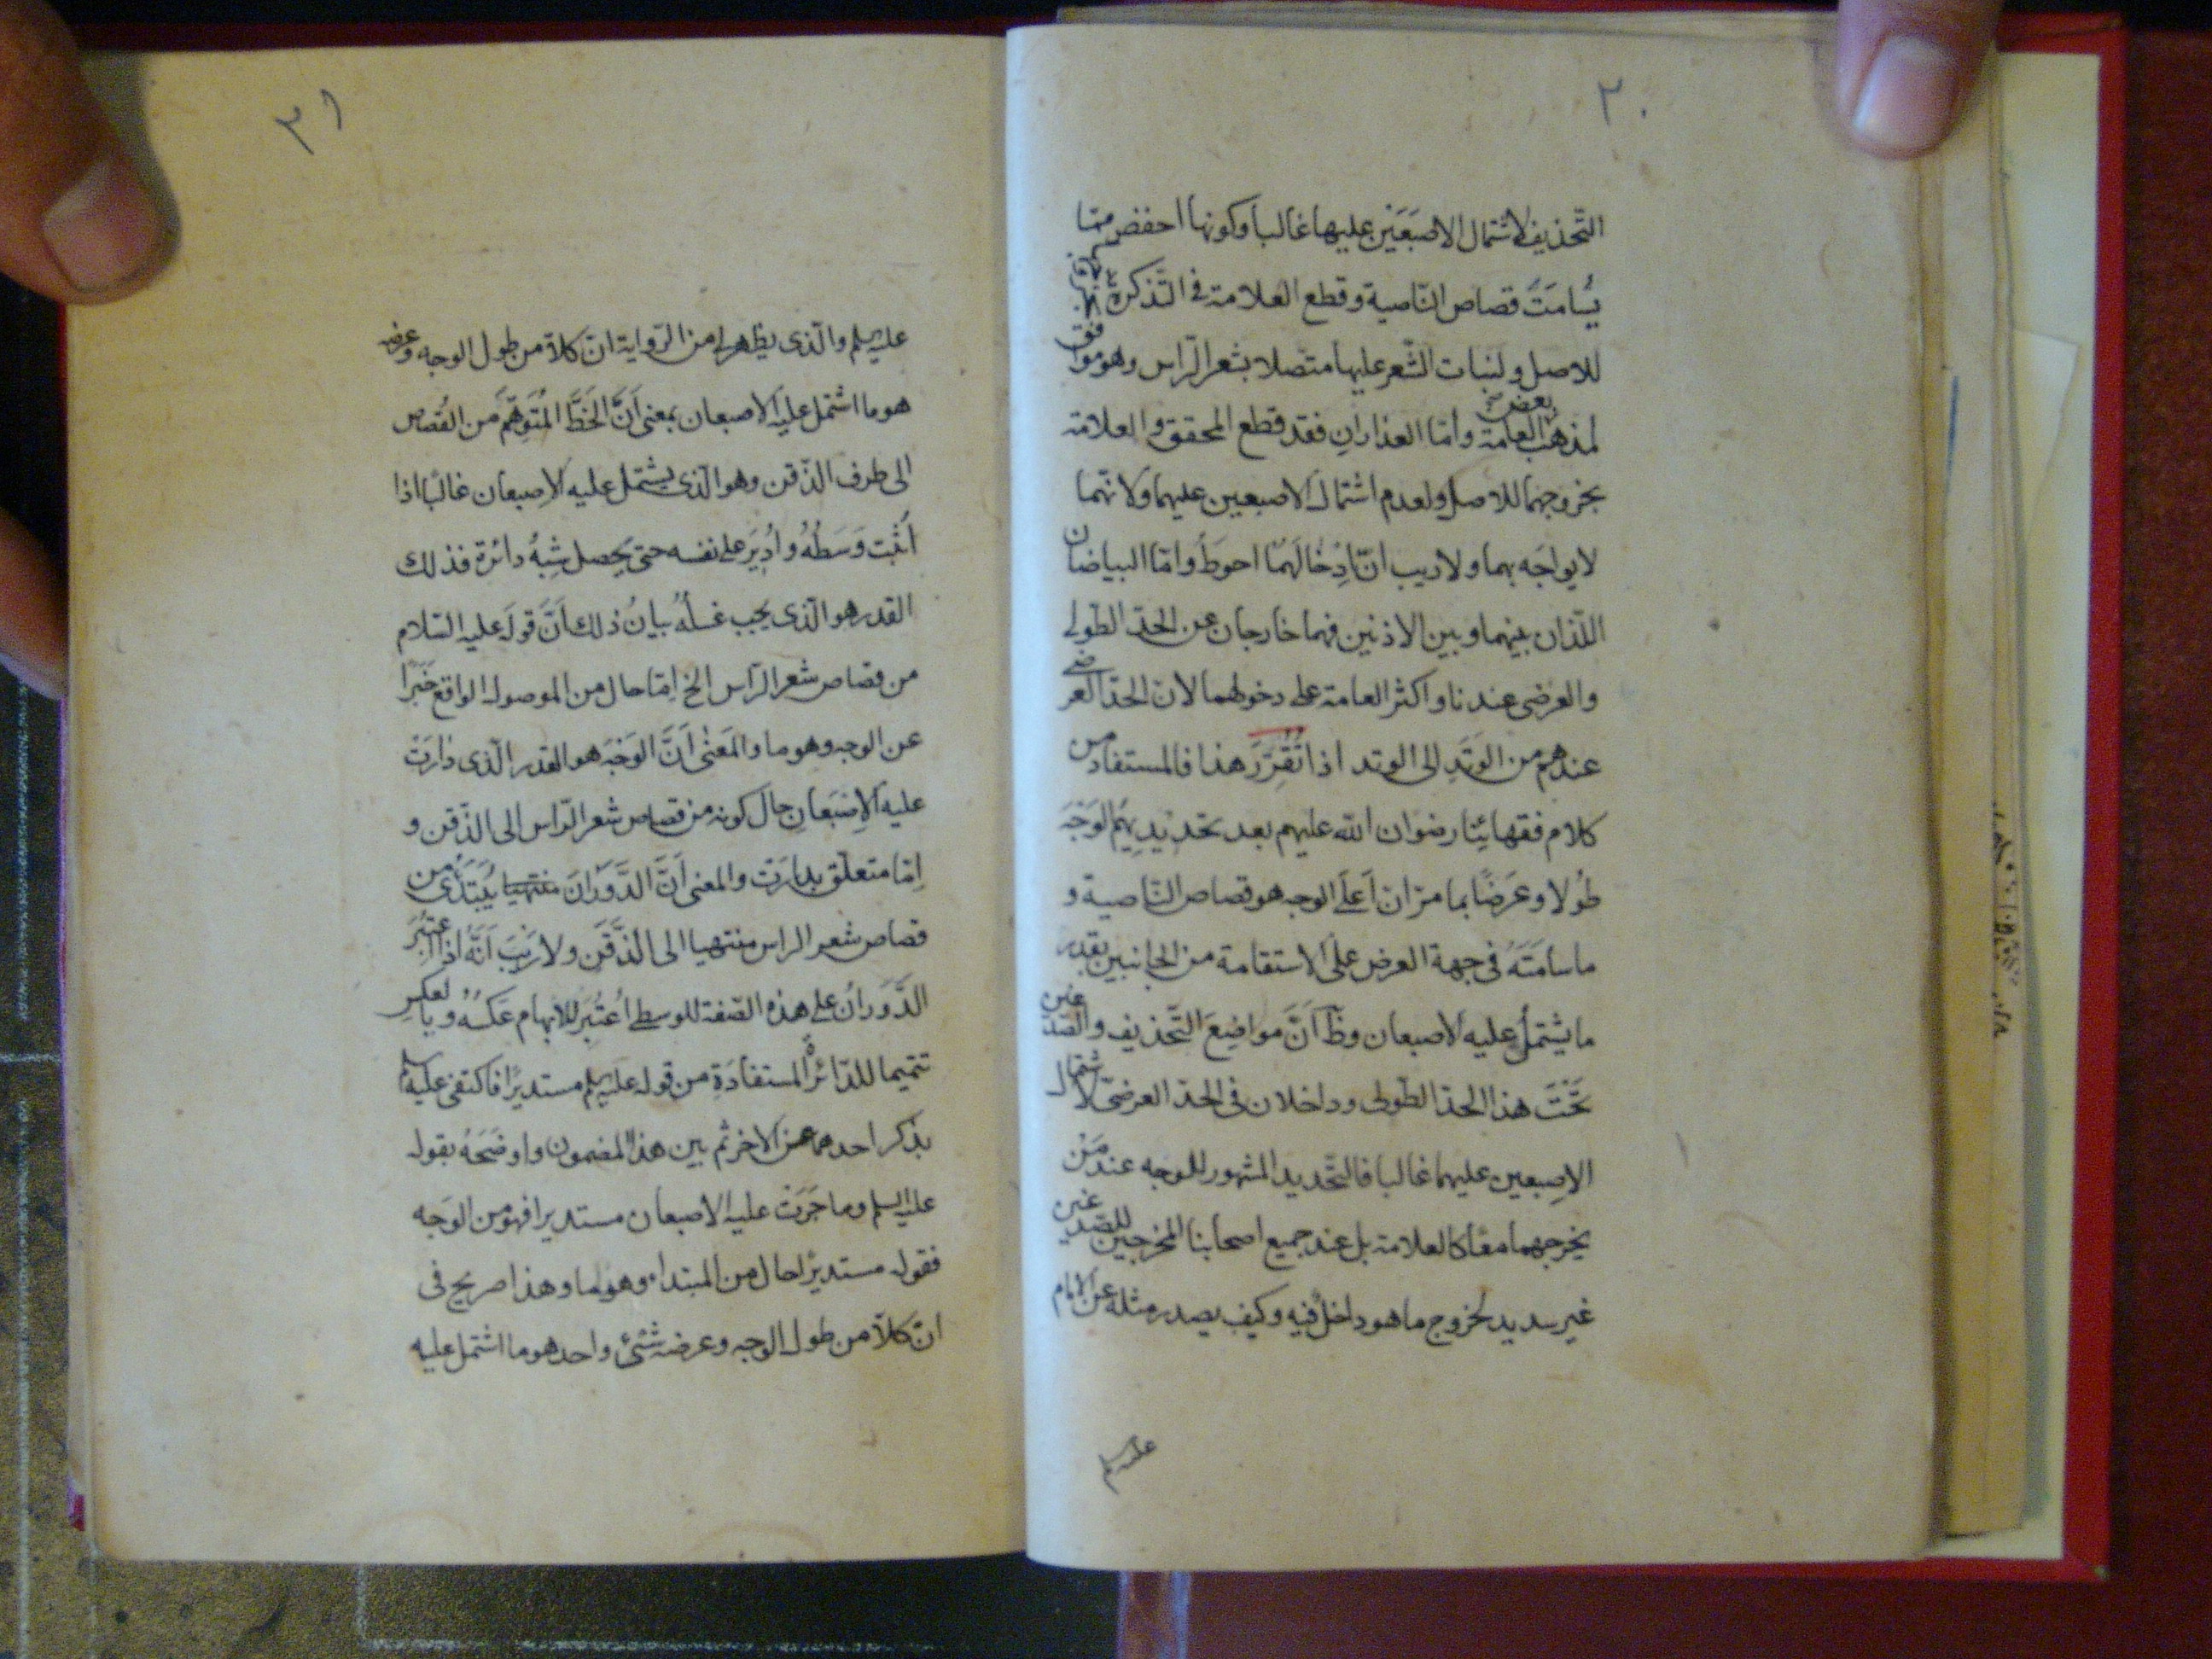 ٢٠
التَّحذيف لاشتمال الاصبَعَين عليها غالبا وكونها اخفض ممّا
يُسامَتُ قصاص النّاصية وقطع العلامة فى التَّذكرة
للاصل ولنبات الشّعر عليها متّصلا بشعر الرّاس وهو موافق
لمذهب بعض العامة وامّا العذارانِ فقد قطع المحقق والعلامة
بخروجهما للاصل ولعدم اشتمال الاصبعين عليهما ولانّهما
لا يواجَه بهما ولا ريب انّ اِدْخالَهُمٰا احوطُ وامّا البياضان
اللّذان بينهما وبين الاذنين فهما خارجان عن الحدّ الطولى
والعرضى عندنا واكثر العامة على دخولهما لان الحدّ العرضى
عندهم من الوَتَدِ الى الوتد اذا تُقُرِّرَ هذا فالمستفاد من
كلام فقهائِنٰا رضوان الله عليهم بعد تحديدِهِم الوَجْهَ
طُولا وعَرضًا بما مرّ ان اَعلَى الوجه هو قصاص النّاصية و
ما سامَتَهُ فى جهة العرض على الاستقامة من الجانبين بقدر
ما يشتمل عليه الاصبعان وظ اَنَّ مواضِعَ التَّحذيف والصّدغين
تَحْتَ هذا الحدّ الطّولى وداخلان فى الحدّ العرضىّ لاشتمال
الاِصبعين عليهما غالبا فالتَّحديد المشهور للوجه عند مَنْ
يخرجهما معًا كالعلامة بل عند جميع اصحابنا المخرجين للصّدغين
غير سديد لخروج ما هو داخلٌ فيه وكيف يصدر مثله عن الامام
عليه السلم
٢١
عليه السلم والّذى يظهر لى من الرّواية انّ كلاّ من طول الوجه وعرضه
هو ما اشتمل عليه الاصبعان بمعنى اَنَّ الخَطَّ المُتَوهَّمَ من القُصاص
الى طرف الذّقن وهو الّذى يشتمل عليه الاِصبعان غالبًا اذا
اُثْبِت وَسَطُهُ واُدِيرَ على نفسه حتى يحصل شِبْهُ دائرة فذلك
القدر هو الّذى يجب غسلُهُ بيانُ ذلك اَنَّ قولَه عليه السّلام
من قصاص شعر الرّاس الخ اِمّا حال من الموصول الواقع خَبَرًا
عن الوجه وهو ما والمَعْنٰى اَنَّ الوَجْهَ هو القدر الّذى دٰارَتْ
عليه الاِصْبَعانِ حالَ كونه من قصاص شعر الرّاس الى الذّقن و
اِمّا متعلّق بدارَت والمعنى اَنَّ الدَّوَرٰانَ منتهيا يُبْتَدَى من
قصاص شعر الراس منتهيا الى الذَّقَن ولا رَيْبَ اَنَّهُ اذا اعتُبِرَ
الدَّوَرانُ على هذه الصّفة للوسطى اُعتُبِرَ للابهام عَكسُهُ وبالعكس
تتميما للدّائرة المستفادَةِ من قوله عليه السلم مستديرًا فاكتفى عليه السلم
بذكر احدهما عن الاخر ثم بين هذا المضمون واوضَحَهُ بقوله
عليه السلم وما جَرَتْ عليه الاصبعان مستديرا فهو من الوَجه
فقوله مستديرًا حال من المبتداء وهو ما وهذا صريح فى
انّ كلاّ من طول الوجه وعرضه شئ واحد هو ما اشتمل عليه